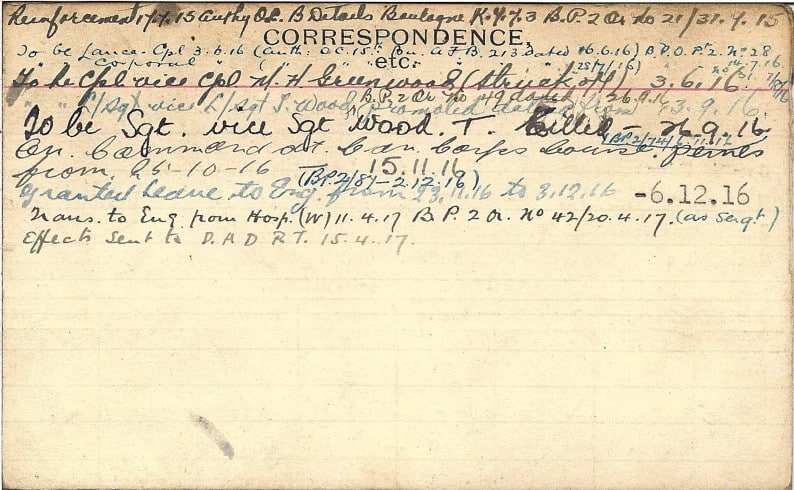 Reinforcement 17.7.15 Authy O.C. B Details Boulogne K.Y.7.3 B.P.2 Or No 21/31.7.15
CORRESPONDENCE,
etc.
To be Lance. Cpl 3.6.16 (Auth: OC. 15th Bn. A.F.B. 213 dated 6.6.16) B.P.O. Pt 2. No 28
" " Corporal " ( " " " " 28/7/16) " No 14.7.16
To be Cpl vice Cpl H. H. Greenwood (Struck off) 3.6.16
" " L/Sgt vice L/Sgt T. Wood, promoted dated from 3.9.16
B.P.2 Or No 49 dated 26.9.16
To be Sgt. vice Sgt Wood. T. Killed - 26.9.16.
On Command at Can. Corps Course. Pernes
from 25-10-16 15.11.16
(B.P.2/87-2.12.16)
Granted Leave to Eng. from 23.11.16 to 3.12.16 -6.12.16
Trans. to Eng from Hosp. (W) 11.4.17 B.P.2 Or. No 42/20.4.17. (as Sergt)
Effects Sent to D.A.D.R.T. 15.4.17.